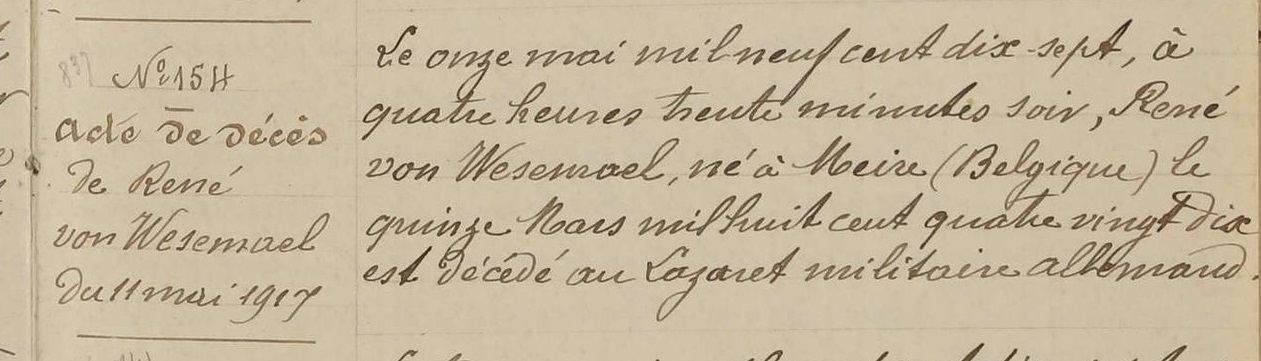 837
No 154
acte de décès
de René
von Wesemael
du 11 mai 1917
Le onze mai mil neuf cent dix-sept, à
quatre heures trente minutes soir, René
von Wesemael, né à Meire (Belgique) le
quinze Mars mil huit cent quatre vingt dix
est décédé au Lazaret militaire allemand.